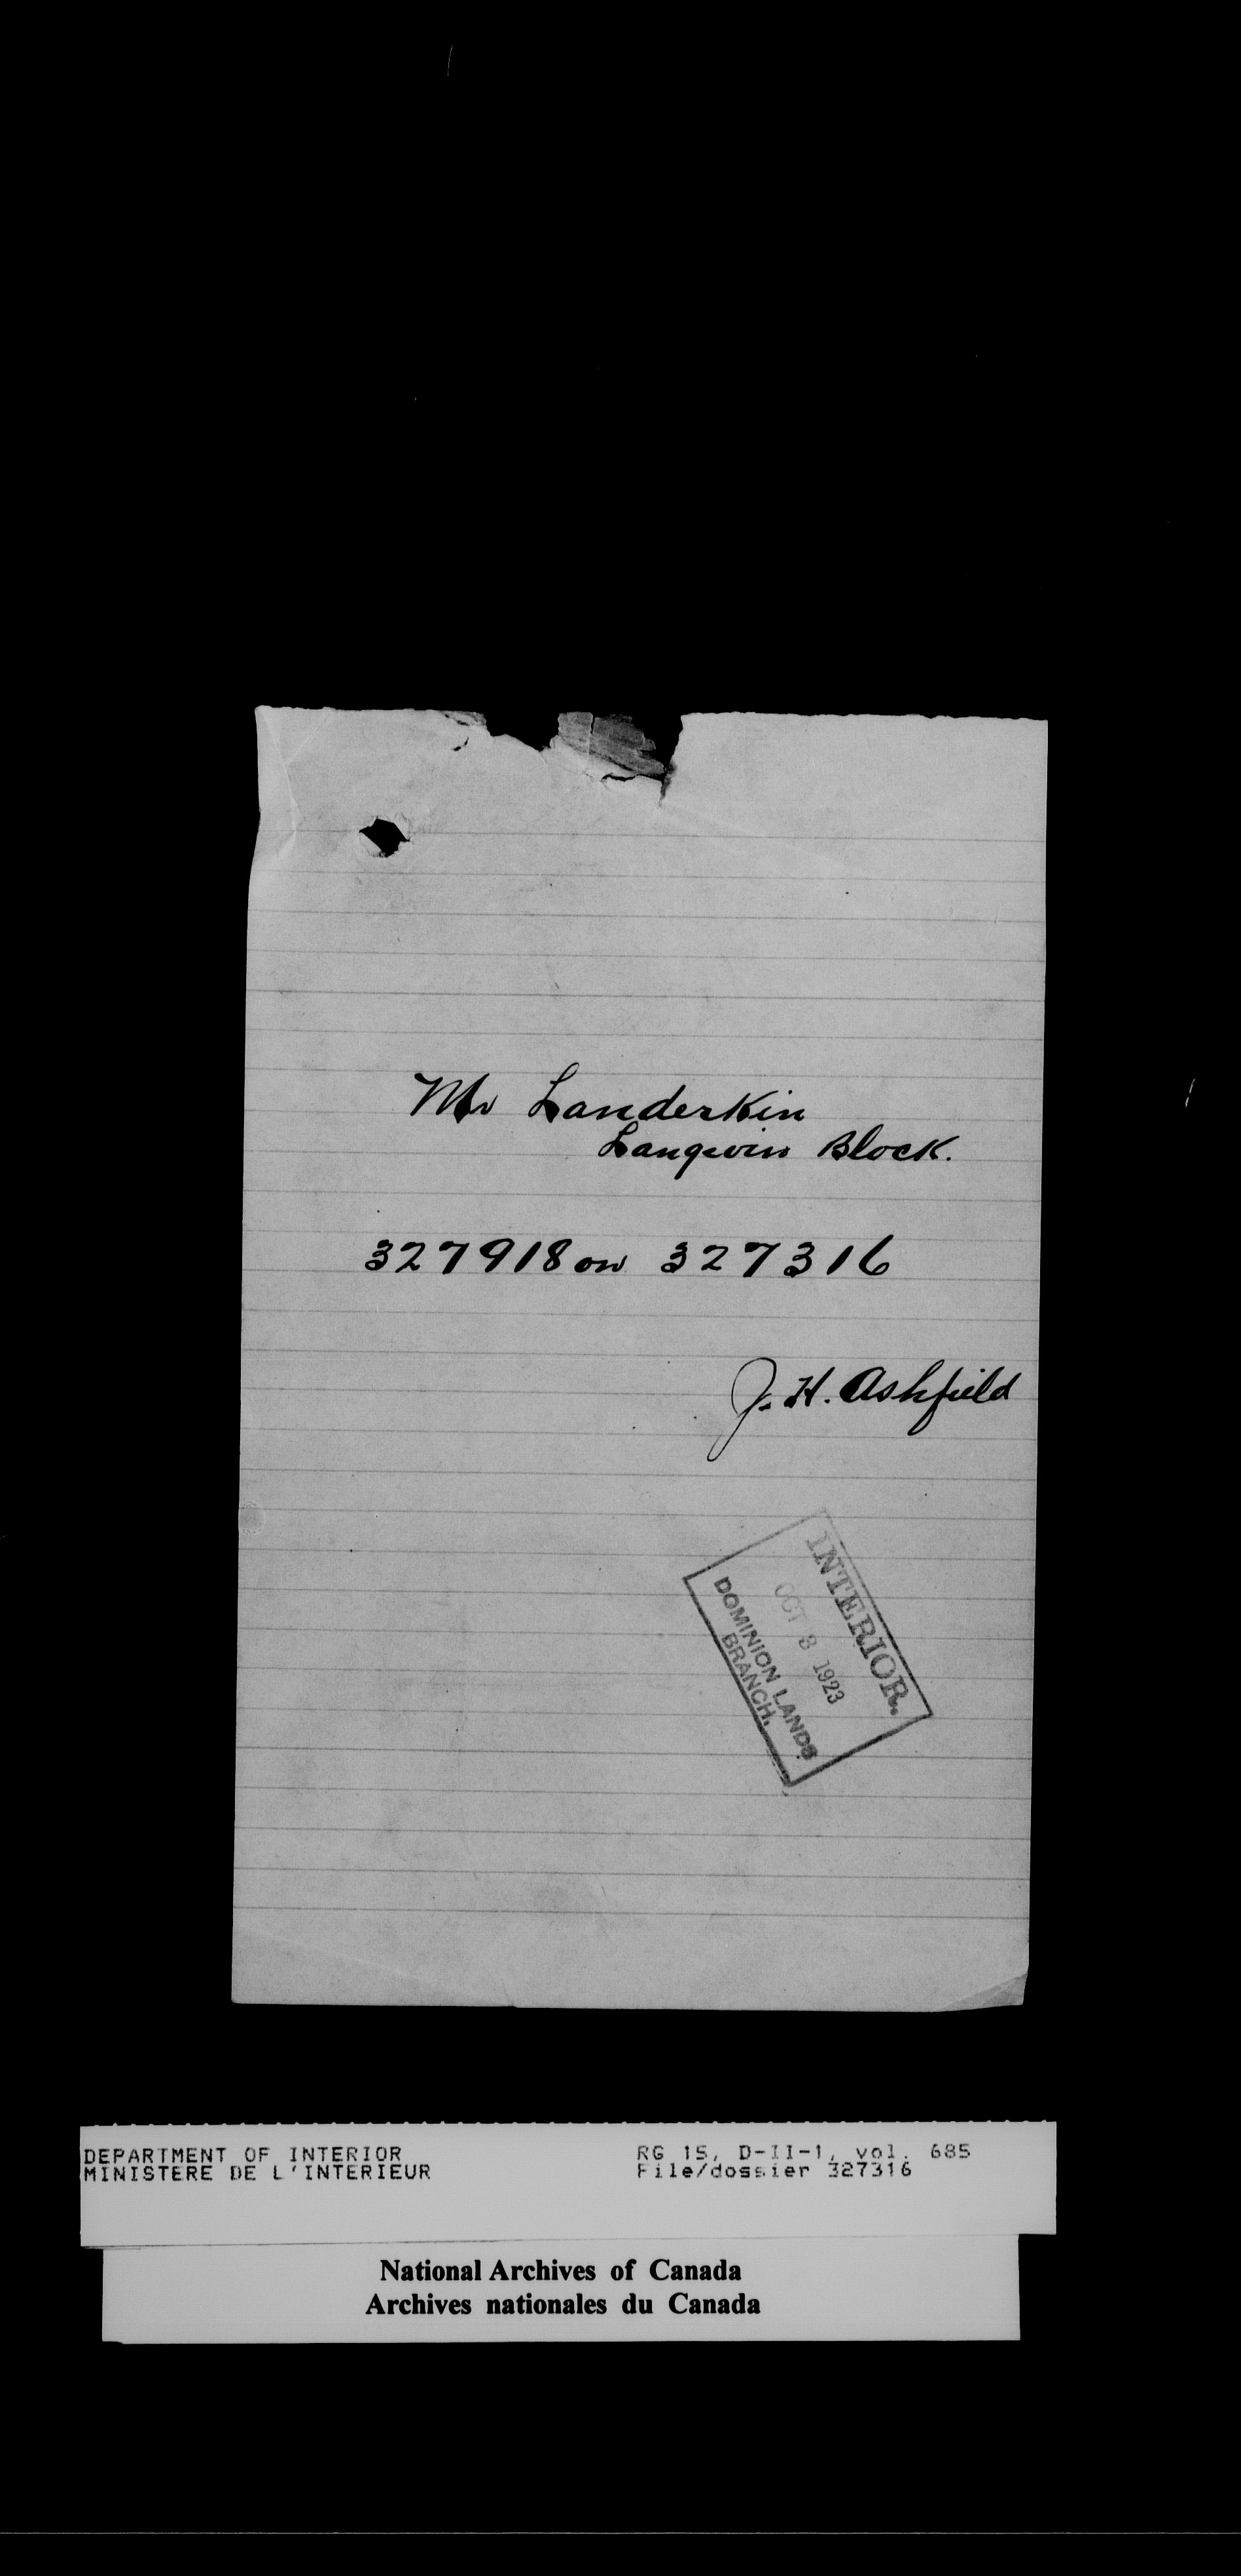 Mr Landerkin
Langevin Block.
327918 on 327316
J. H. Ashfield
INTERIOR.
OCT 3 1923
DOMINION LANDS
BRANCH.
DEPARTMENT OF INTERIOR
MINISTERE DE L'INTERIEUR
RG 15, D-II-1, vol. 685
File/dossier 327316
National Archives of Canada
Archives nationales du Canada